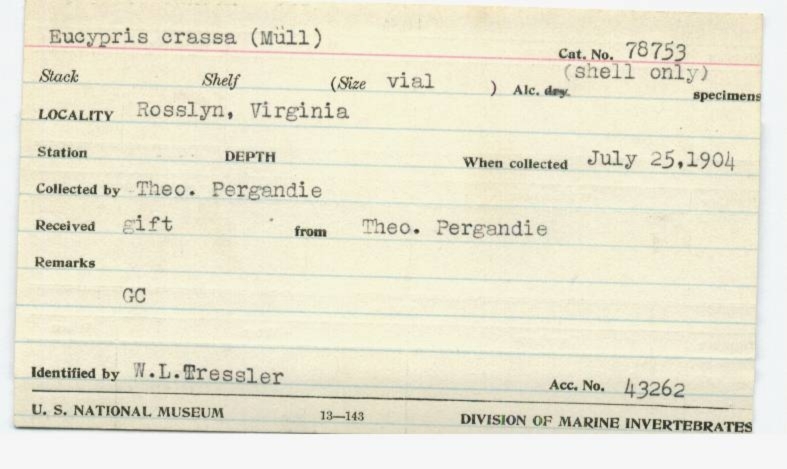 Eucypris crassa (Müll)
Cat. No. 78753
Stack Shelf (Size vial ) Alc. dry. (shell only) specimens
LOCALITY Rosslyn, Virginia
Station DEPTH When collected July 25,1904
Collected by Theo. Pergandie
Received gift from Theo. Pergandie
Remarks
GC
Identified by W.L.Tressler
Acc. No. 43262
U. S. NATIONAL MUSEUM 13—143 DIVISION OF MARINE INVERTEBRATES